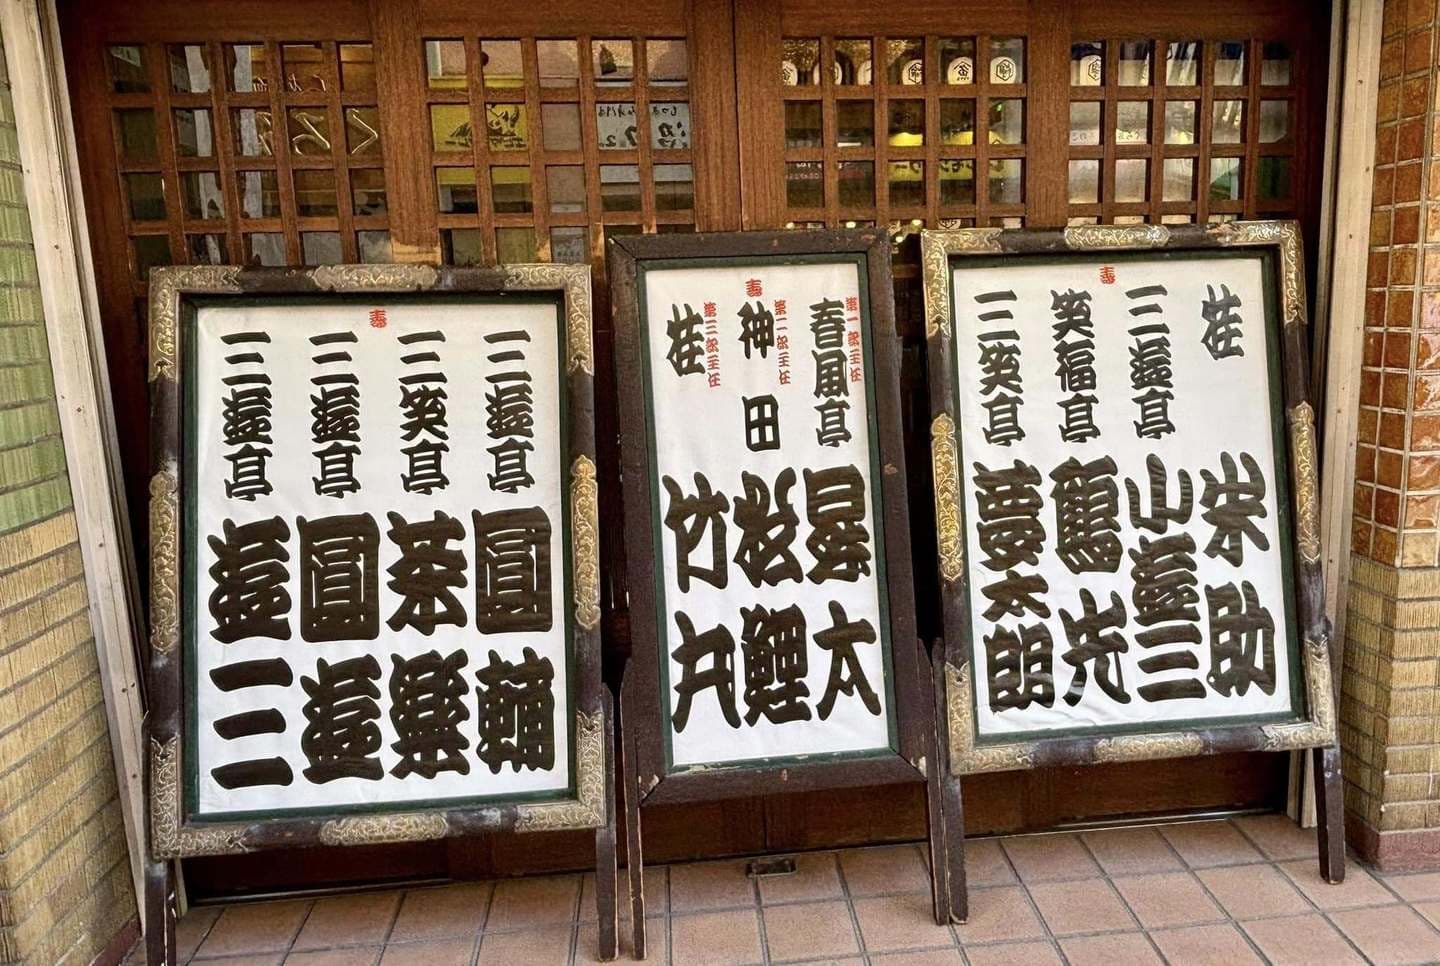 寿
桂 米助
三遊亭 小遊三
笑福亭 鶴光
三笑亭 夢太朗
寿
第一部主任
春風亭 昇太
第二部主任
神田 松鯉
第三部主任
桂 竹丸
寿
三遊亭 圓輔
三笑亭 茶樂
三遊亭 圓遊
三遊亭 遊三